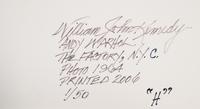 William John Kennedy
ANDY WARHOL
THE FACTORY, N.Y.C.
PHOTO 1964
PRINTED 2006
1/50 "H"